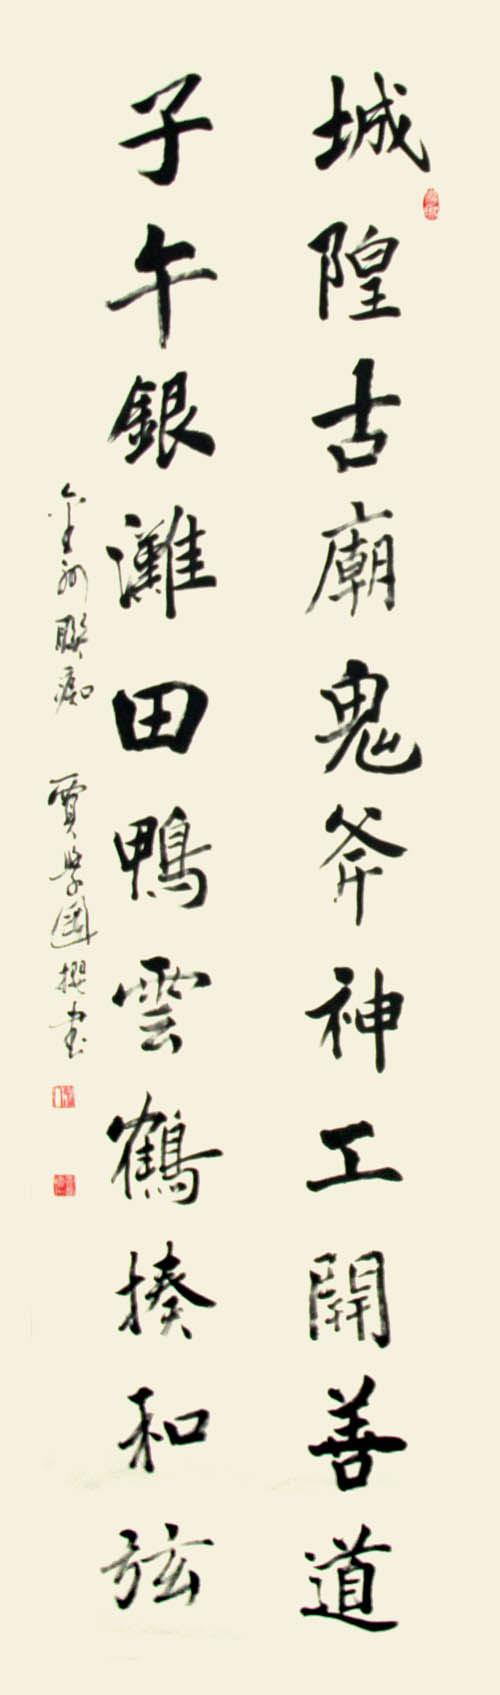 城隍古廟鬼斧神工開善道
子午銀灘田鴨雲鶴揍和弦
金州聯痴 賈學國撰書